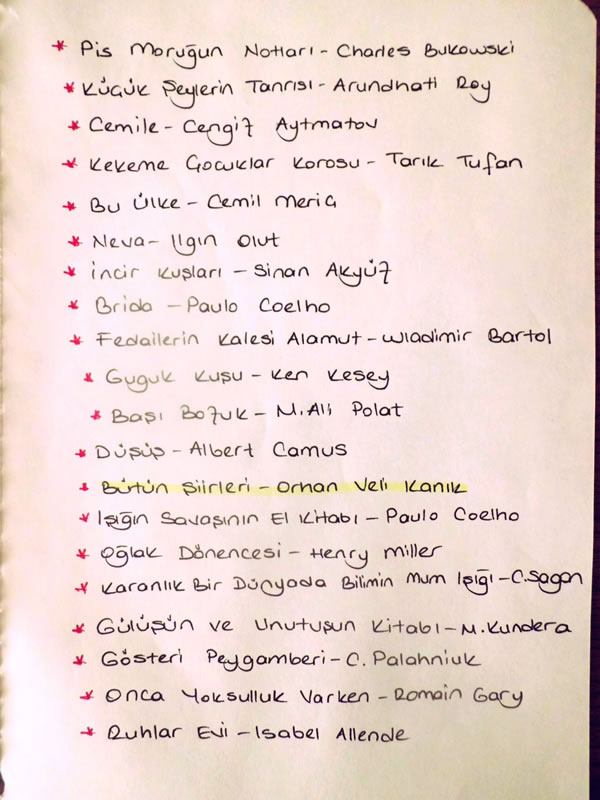 * Pis Moruğun Notları - Charles Bukowski
* Küçük Şeylerin Tanrısı - Arundhati Roy
* Cemile - Cengiz Aytmatov
* Kekeme Çocuklar Korosu - Tarık Tufan
* Bu Ülke - Cemil Meriç
* Neva - Ilgın Olut
* İncir Kuşları - Sinan Akyüz
* Brida - Paulo Coelho
* Fedailerin Kalesi Alamut - Wladimir Bartol
* Guguk Kuşu - Ken Kesey
* Başı Bozuk - M. Ali Polat
* Düşüş - Albert Camus
* Bütün Şiirleri - Orhan Veli Kanık
* Işığın Savaşının El Kitabı - Paulo Coelho
* Oğlak Dönencesi - Henry Miller
* Karanlık Bir Dünyada Bilimin Mum Işığı - C. Sagan
* Gülüşün ve Unutuşun Kitabı - M. Kundera
* Gösteri Peygamberi - C. Palahniuk
* Onca Yoksulluk Varken - Romain Gary
* Ruhlar Evi - Isabel Allende